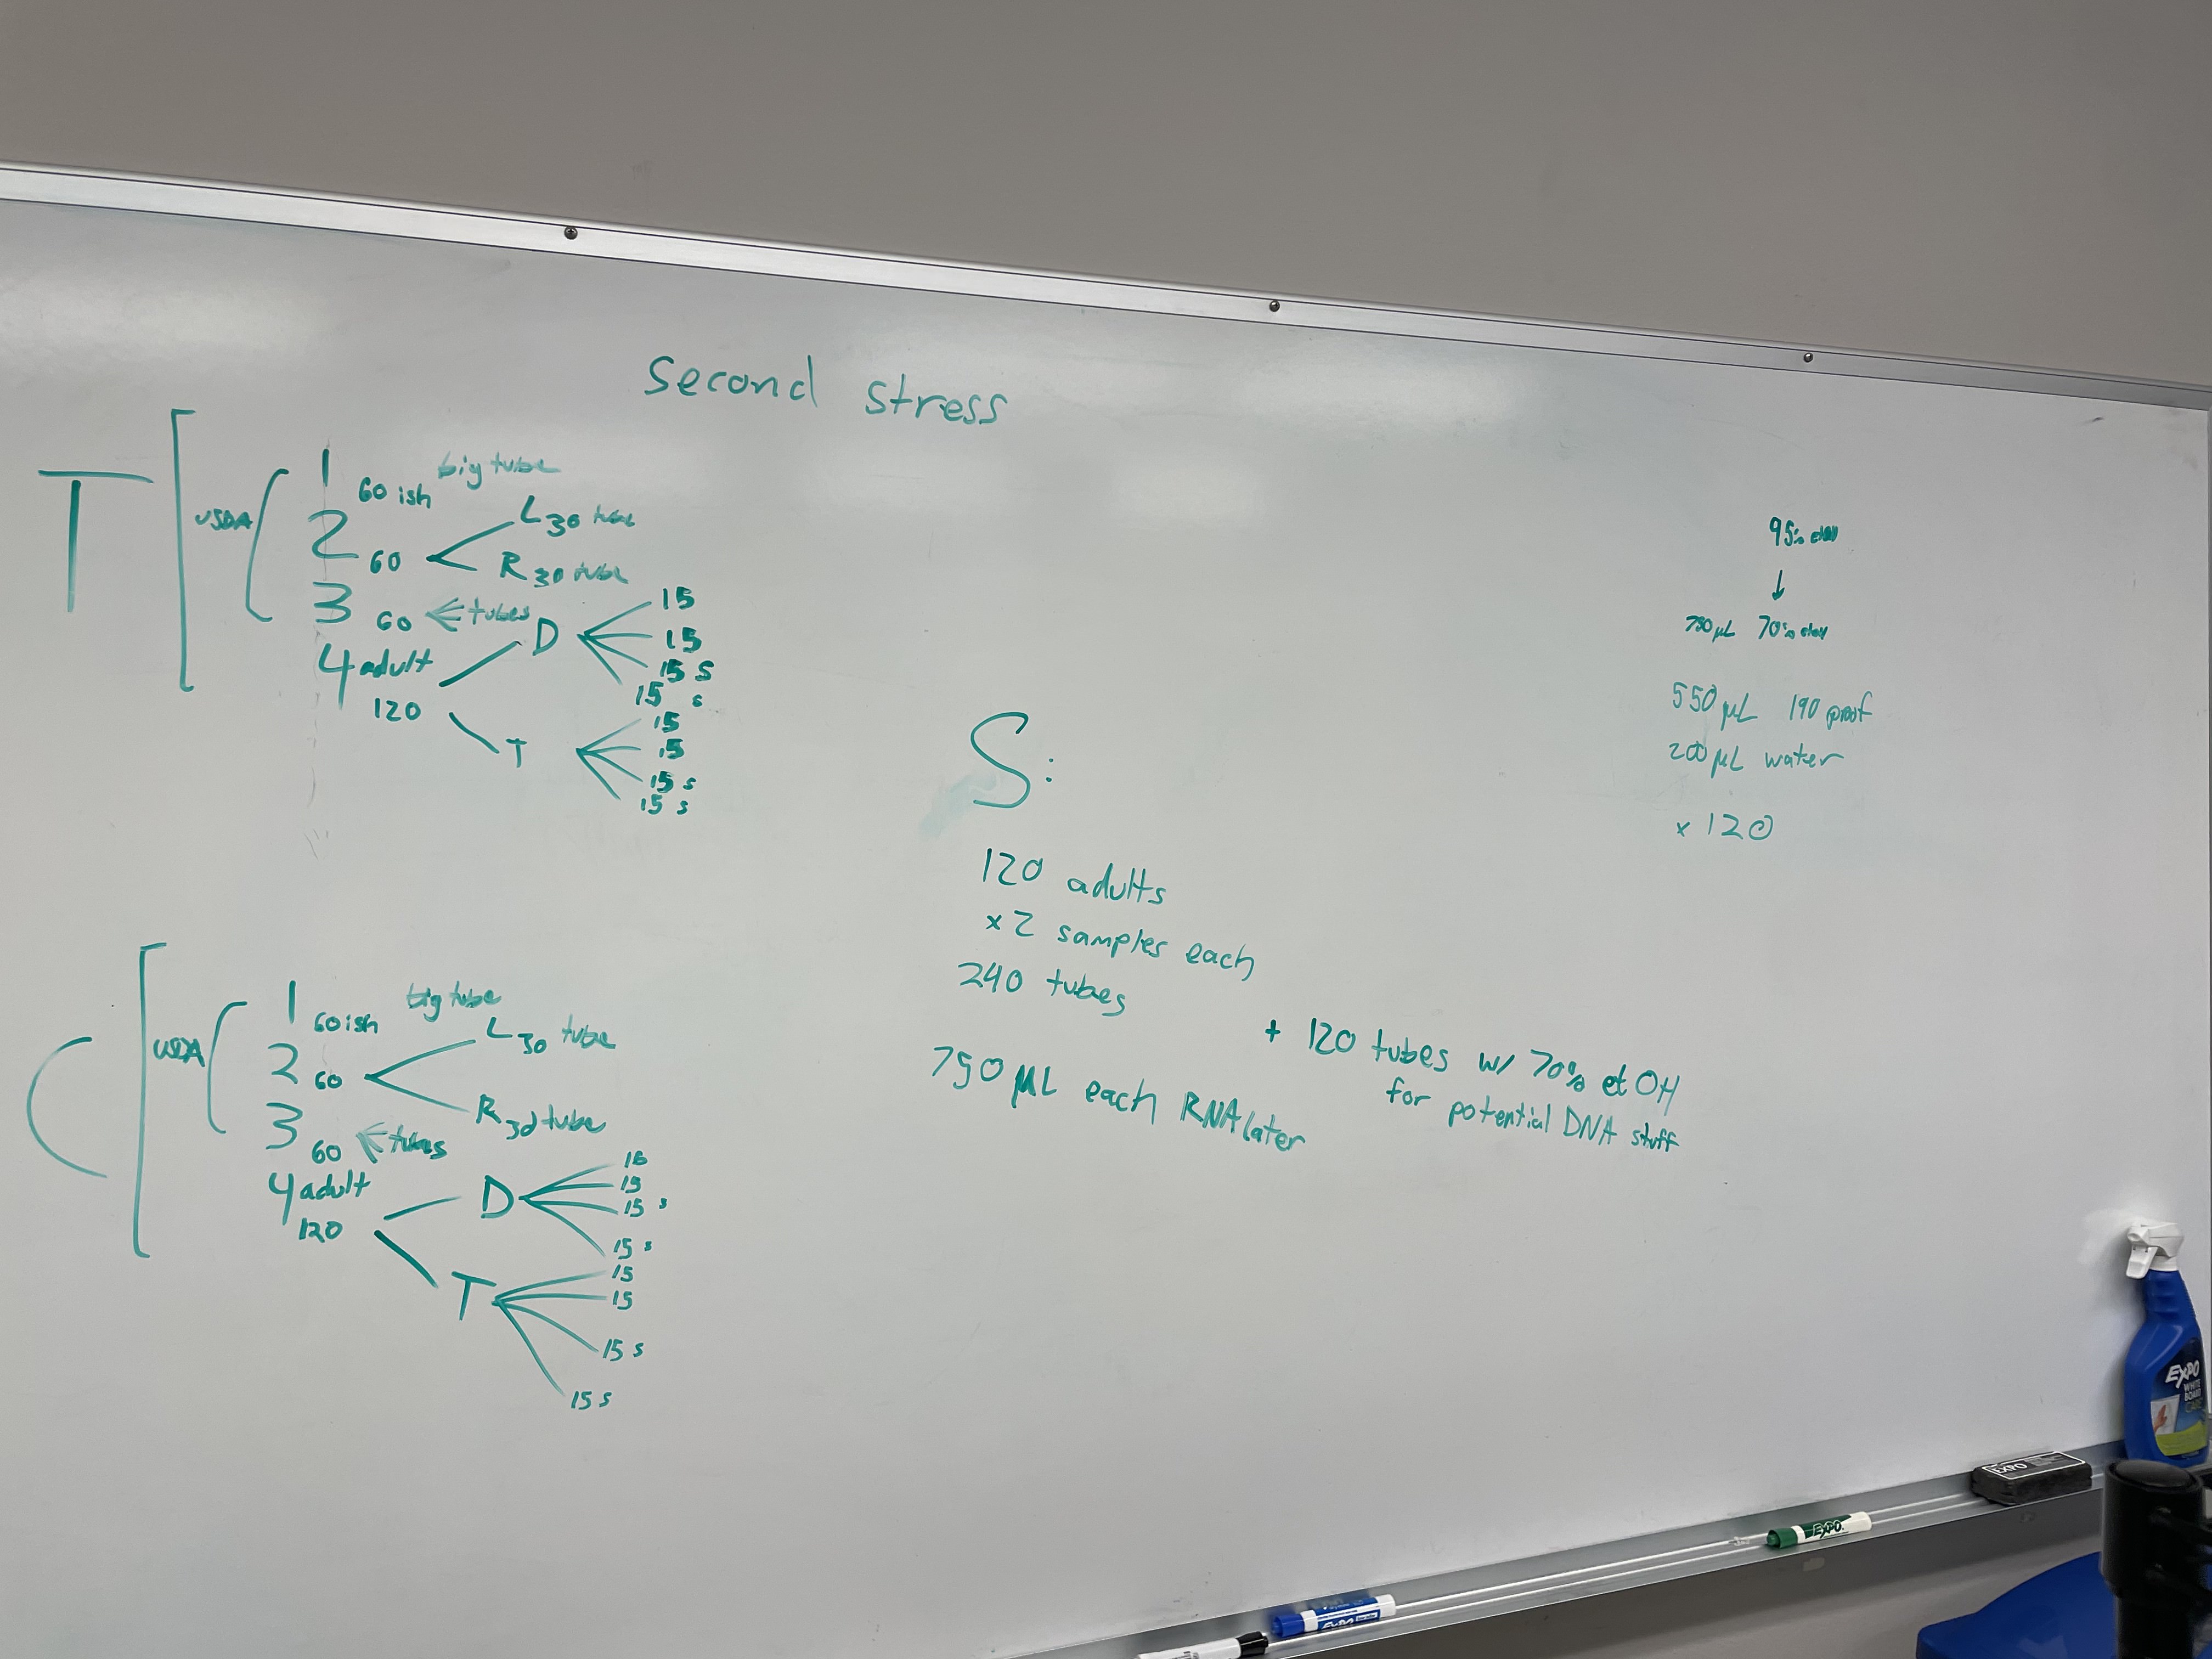 second stress
T
USDA
1 60 ish big tube
2 60 L 30 tube
R 30 tube
3 60 tubes
4 adult
120
D
15
15
15 s
15 s
T
15
15
15 s
15 s
C
USDA
1 60 ish big tube
2 60 L 30 tube
R 30 tube
3 60 tubes
4 adult
120
D
15
15
15 s
15 s
T
15
15
15 s
15 s
S:
120 adults
x 2 samples each
240 tubes
750 µL each RNAlater
+ 120 tubes w/ 70% etOH
for potential DNA stuff
95% etOH
↓
750 µL 70% etOH
550 µL 190 proof
200 µL water
x 120
EXPO
WHITE
BOARD
CARE
EXPO
EXPO
EXPO